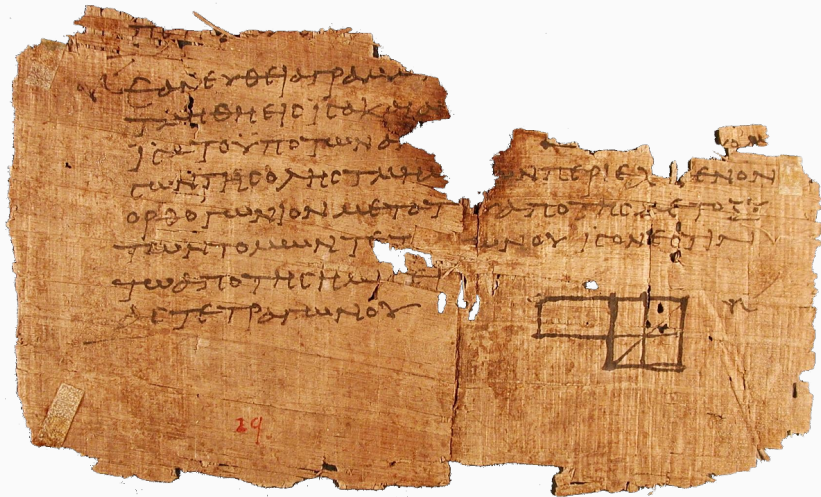 ΕΑΝΕΥΘΕΙΑΓΡΑΜΜ
ΤΜΗΘΗΕΙϹΙϹΑΚΑΙΑ
ΙϹΑΤΟΥΠΟΤΩΝΑ
ϹΩΝΤΗϹΟΛΗϹΤΜΗΜ ΩΝΠΕΡΙΕΧ ΜΕΝΟΝ
ΟΡΘΟΓΩΝΙΟΝΜΕΤΟΤ ΥΑΠΟΤΗϹΜΕΤΟΞΥ
ΤΩΝΤΟΜΩΝΤΕΤ ΓΩΝΟΥ ΙϹΟΝΕϹΤΙΝ
ΤΩΑΠΟΤΗϹΗΜΙϹΙ
ΑϹΤΕΤΡΑΓΩΝΟΥ
29